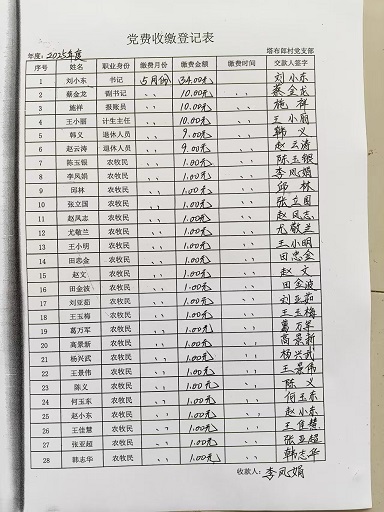 党费收缴登记表
年度：2025年度 塔布郎村党支部
序号 姓名 职业身份 缴费月份 缴费金额 缴费时间 交款人签字
1 刘小东 书记 5月份 34.00元 刘小东
2 蔡金龙 副书记 〃 10.00元 〃 蔡金龙
3 施祥 报账员 〃 10.00元 〃 施祥
4 王小丽 计生主任 〃 10.00元 〃 王小丽
5 韩义 退休人员 〃 9.00元 〃 韩义
6 赵云涛 退休人员 〃 9.00元 〃 赵云涛
7 陈玉银 农牧民 〃 1.00元 〃 陈玉银
8 李凤娟 农牧民 〃 1.00元 〃 李凤娟
9 邱林 农牧民 〃 1.00元 〃 邱林
10 张立国 农牧民 〃 1.00元 〃 张立国
11 赵凤志 农牧民 〃 1.00元 〃 赵凤志
12 尤敬兰 农牧民 〃 1.00元 〃 尤敬兰
13 王小明 农牧民 〃 1.00元 〃 王小明
14 田忠金 农牧民 〃 1.00元 〃 田忠金
15 赵文 农牧民 〃 1.00元 〃 赵文
16 田金波 农牧民 〃 1.00元 〃 田金波
17 刘亚茹 农牧民 〃 1.00元 〃 刘亚茹
18 王玉梅 农牧民 〃 1.00元 〃 王玉梅
19 葛万军 农牧民 〃 1.00元 〃 葛万军
20 高景新 农牧民 〃 1.00元 〃 高景新
21 杨兴武 农牧民 〃 1.00元 〃 杨兴武
22 王景伟 农牧民 〃 1.00元 〃 王景伟
23 陈义 农牧民 〃 1.00元 〃 陈义
24 何玉东 农牧民 〃 1.00元 〃 何玉东
25 赵小东 农牧民 〃 1.00元 〃 赵小东
26 王佳慧 农牧民 〃 1.00元 〃 王佳慧
27 张亚超 农牧民 〃 1.00元 〃 张亚超
28 韩志华 农牧民 〃 1.00元 〃 韩志华
收款人：李凤娟